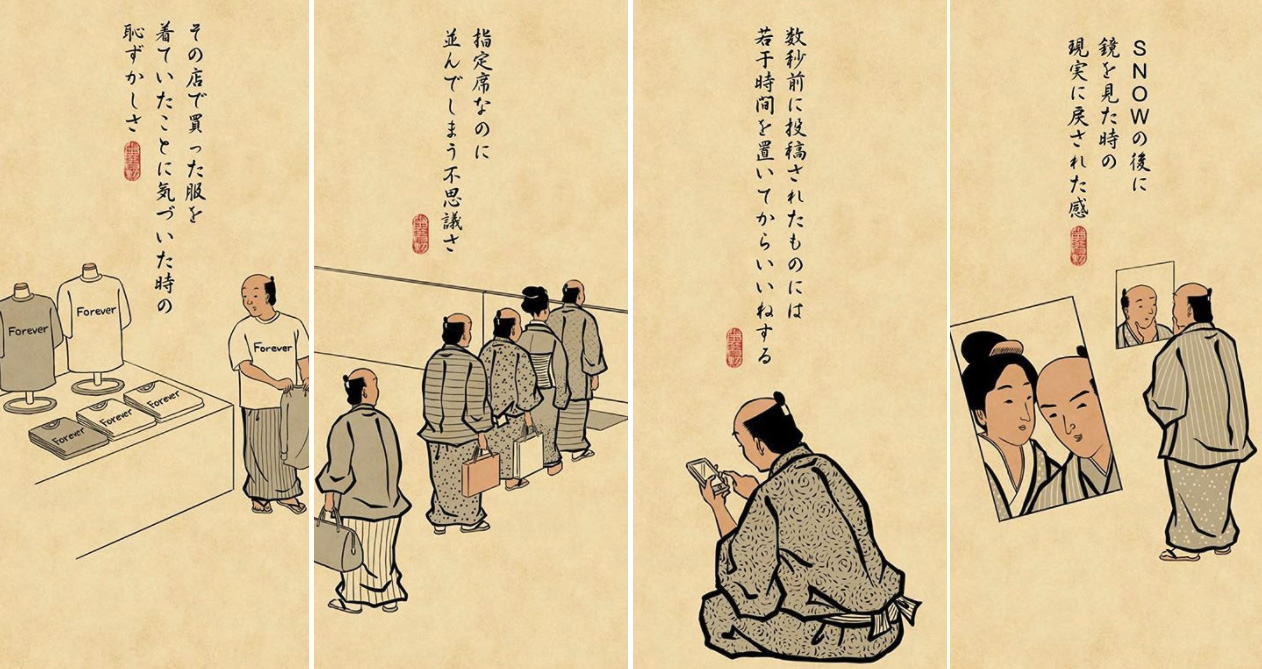 その店で買った服を
着ていたことに気づいた時の
恥ずかしさ
Forever
Forever
Forever
Forever
Forever
Forever
指定席なのに
並んでしまう不思議さ
数秒前に投稿されたものには
若干時間を置いてからいいねする
SNOWの後に
鏡を見た時の
現実に戻された感